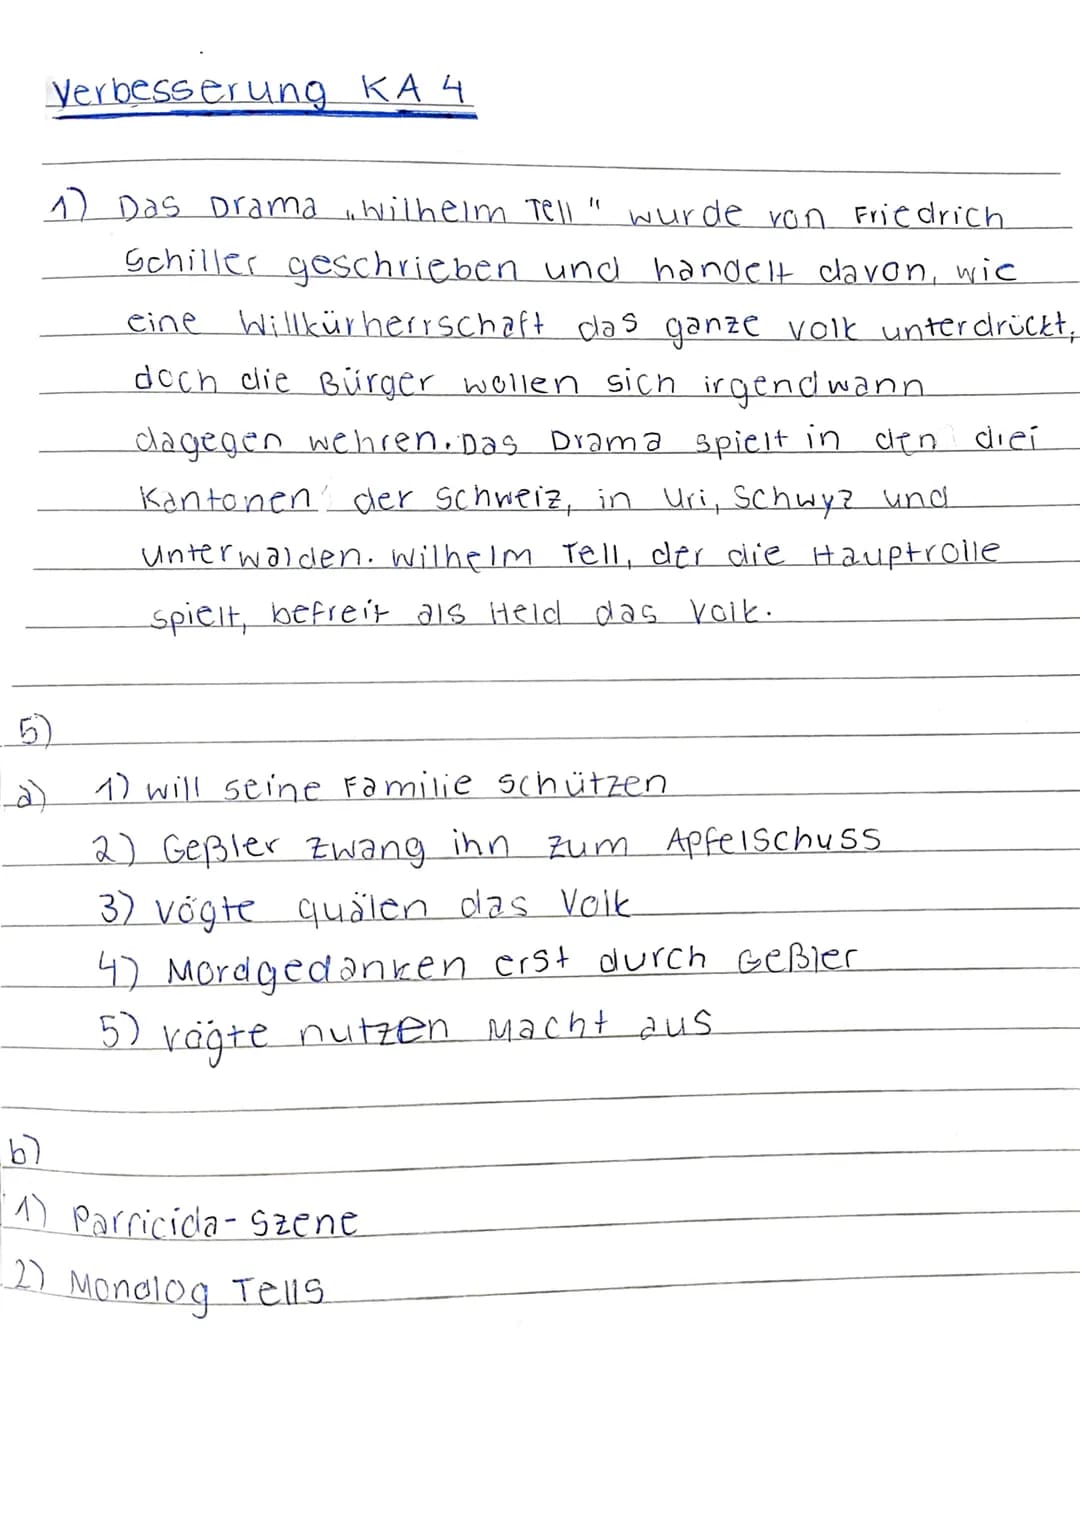 Verbesserung KA 4
1) Das Drama „Wilhelm Tell" wurde von Friedrich
Schiller geschrieben und handelt davon, wie
eine Willkürherrschaft das ganze Volk unterdrückt,
doch die Bürger wollen sich irgendwann
dagegen wehren. Das Drama spielt in den drei
Kantonen der Schweiz, in Uri, Schwyz und
Unterwalden. Wilhelm Tell, der die Hauptrolle
spielt, befreit als Held das Volk.
5)
a) 1) will seine Familie schützen
2) Geßler zwang ihn zum Apfelschuss
3) Vögte quälen das Volk
4) Mordgedanken erst durch Geßler
5) Vögte nutzen Macht aus
b)
1) Parricida-Szene
2) Monolog Tells